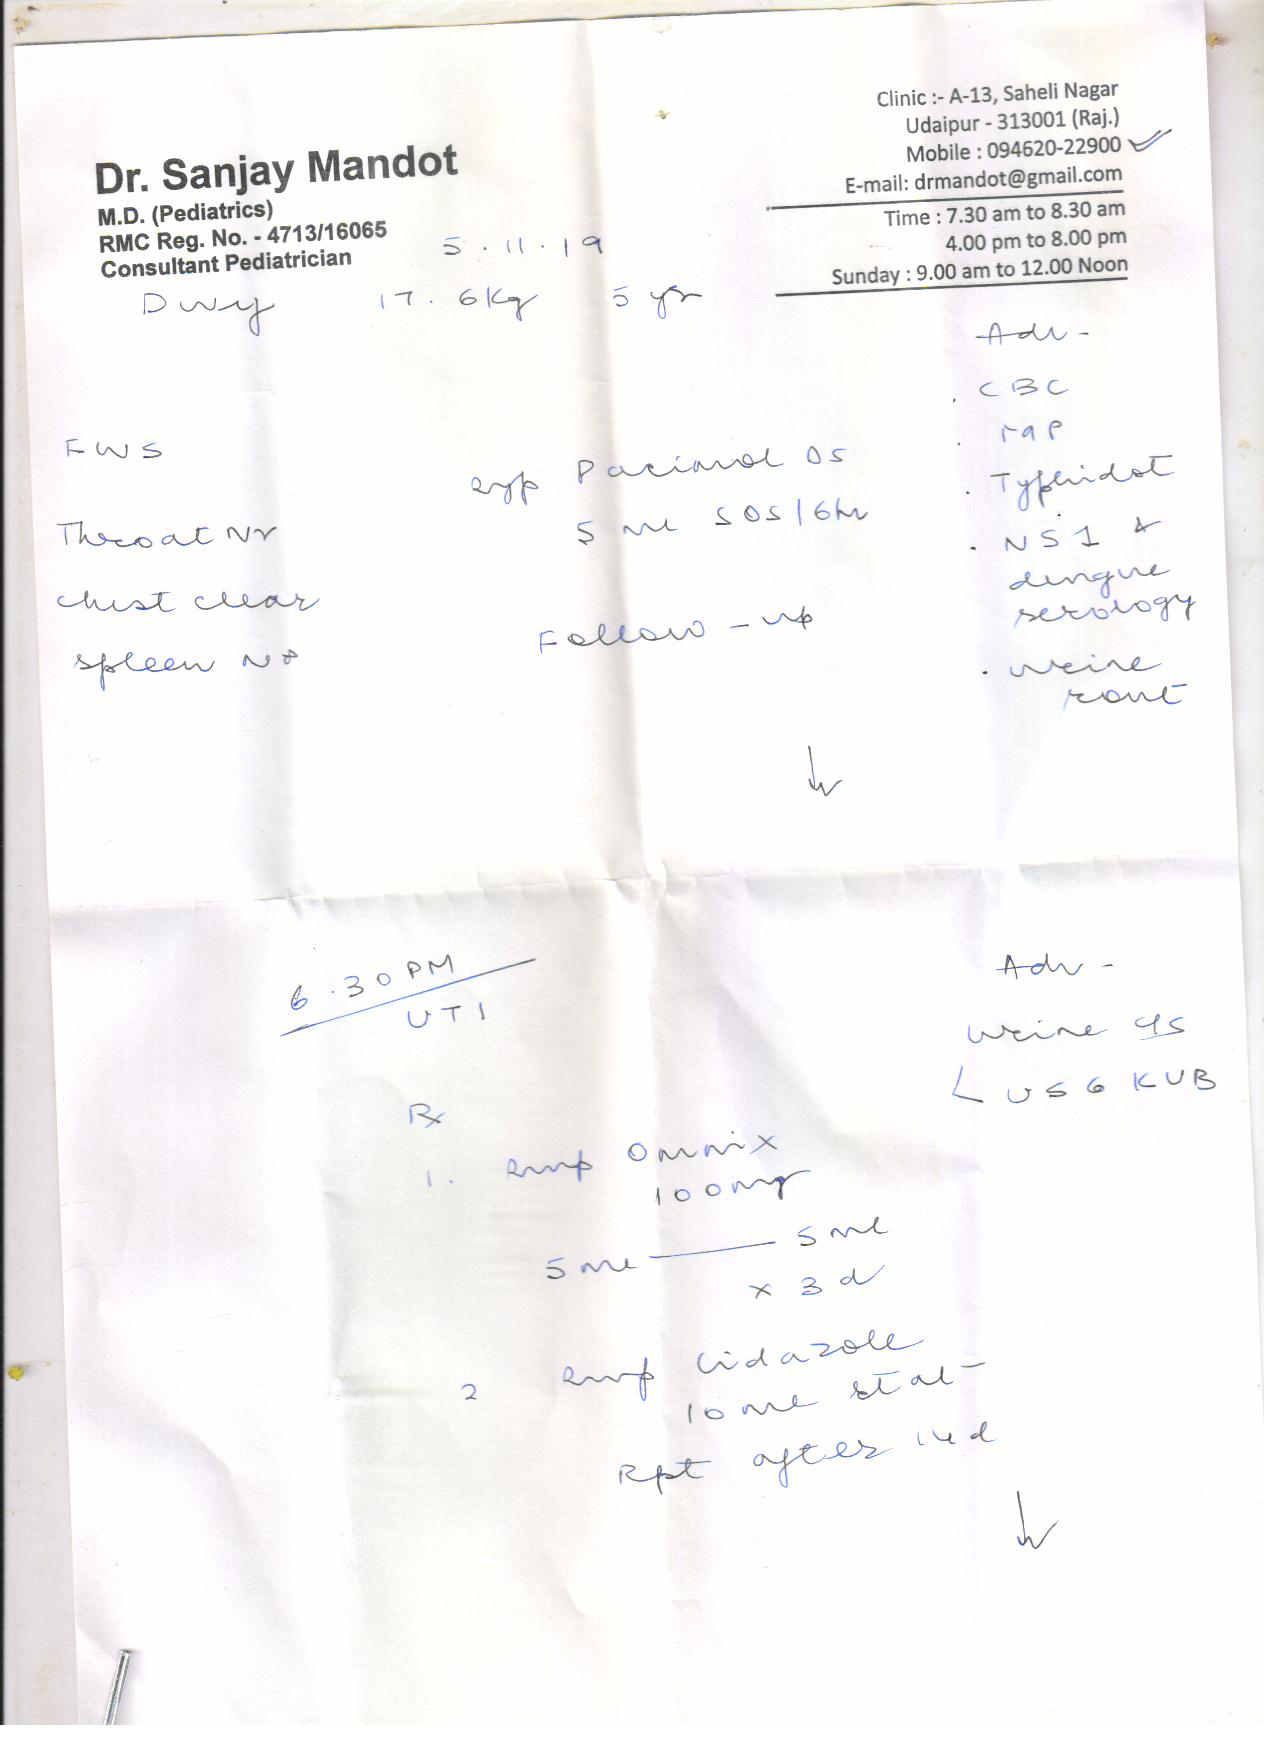 Dr. Sanjay Mandot
M.D. (Pediatrics)
RMC Reg. No. - 4713/16065
Consultant Pediatrician
Clinic :- A-13, Saheli Nagar
Udaipur - 313001 (Raj.)
Mobile : 094620-22900
E-mail: drmandot@gmail.com
Time : 7.30 am to 8.30 am
4.00 pm to 8.00 pm
Sunday : 9.00 am to 12.00 Noon
5.11.19
17.6Kg 5 yr
FWS
Throat Nr
chest clear
spleen
syp Pacimol DS
5 ml SOS/6hr
Follow-up
Adv -
. CBC
.
. Typhidot
. NS1 &
dengue
serology
. urine
rout
6.30PM
UTI
Adv -
urine
USG KUB
Rx
1. Omnix
100mg
5 ml — 5 ml
x 3 d
2
10 ml stat
Rpt after 14d